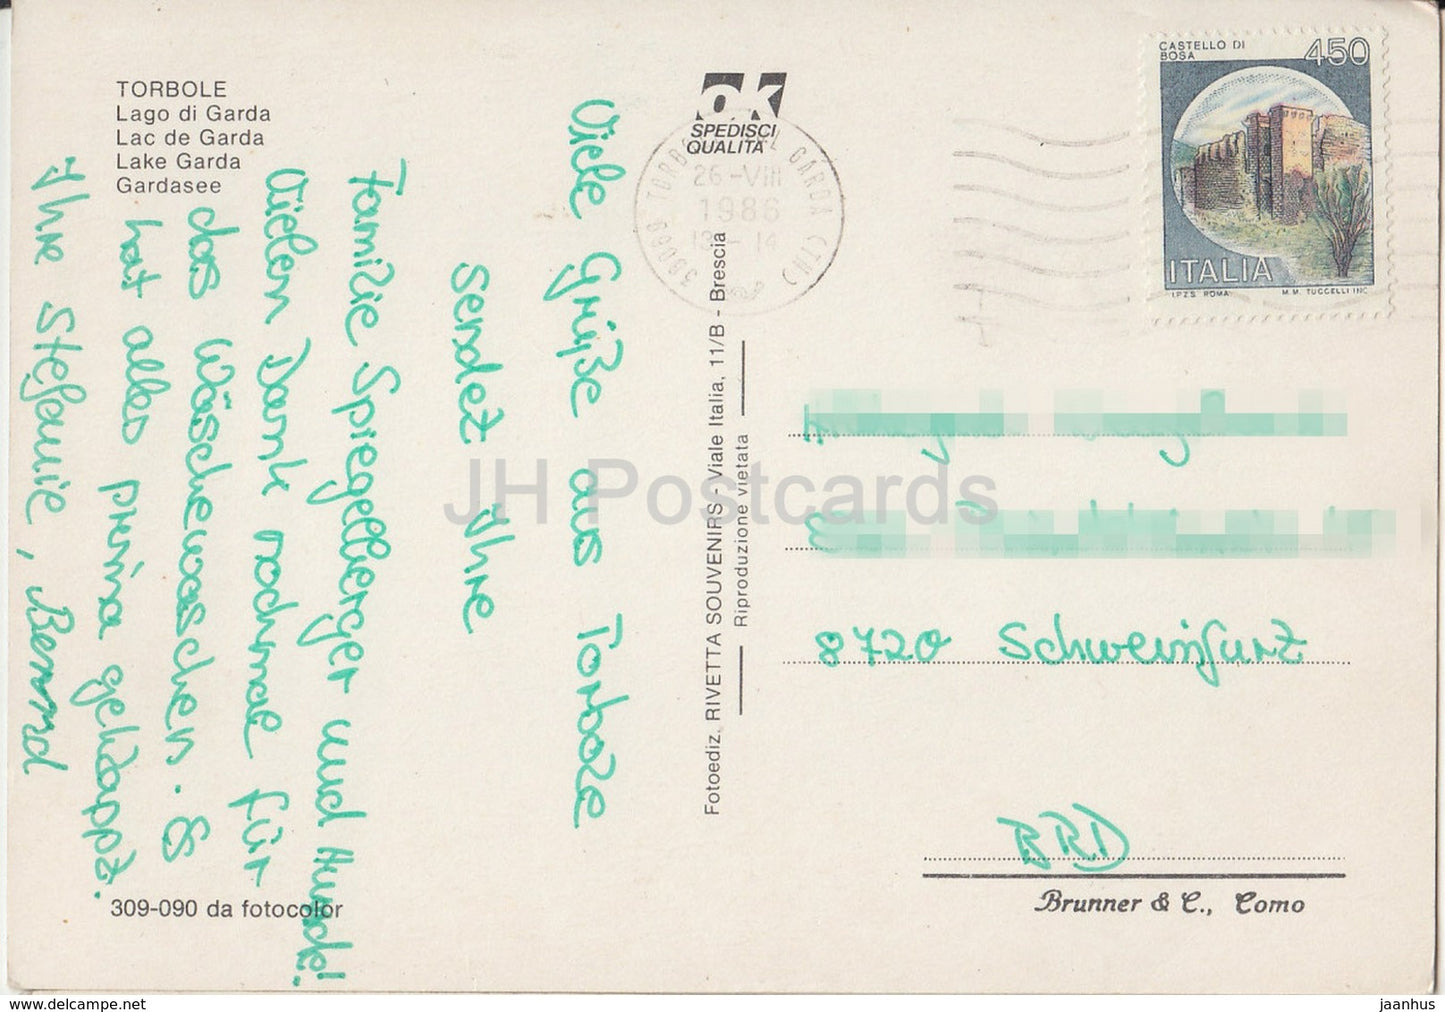 TORBOLE
Lago di Garda
Lac de Garda
Lake Garda
Gardasee
Viele Grüße aus Torbole
sendet Ihre
Familie Spiegellberger und Hunde!
Vielen Dank nochmal für
das Wäschewaschen. Es
hat alles prima geklappt.
Ihre Stefanie, Bernd
309-090 da fotocolor
ok
SPEDISCI
QUALITÀ
26-VIII
1986
Fotoediz. RIVETTA SOUVENIRS - Viale Italia, 11/B - Brescia
Riproduzione vietata
CASTELLO DI
BOSA
450
ITALIA
I.P.Z.S. ROMA
M. M. TUCCELLI INC.
8720 Schweinfurt
BRD
Brunner & C., Como
JH Postcards
delcampe.net
jaanhus